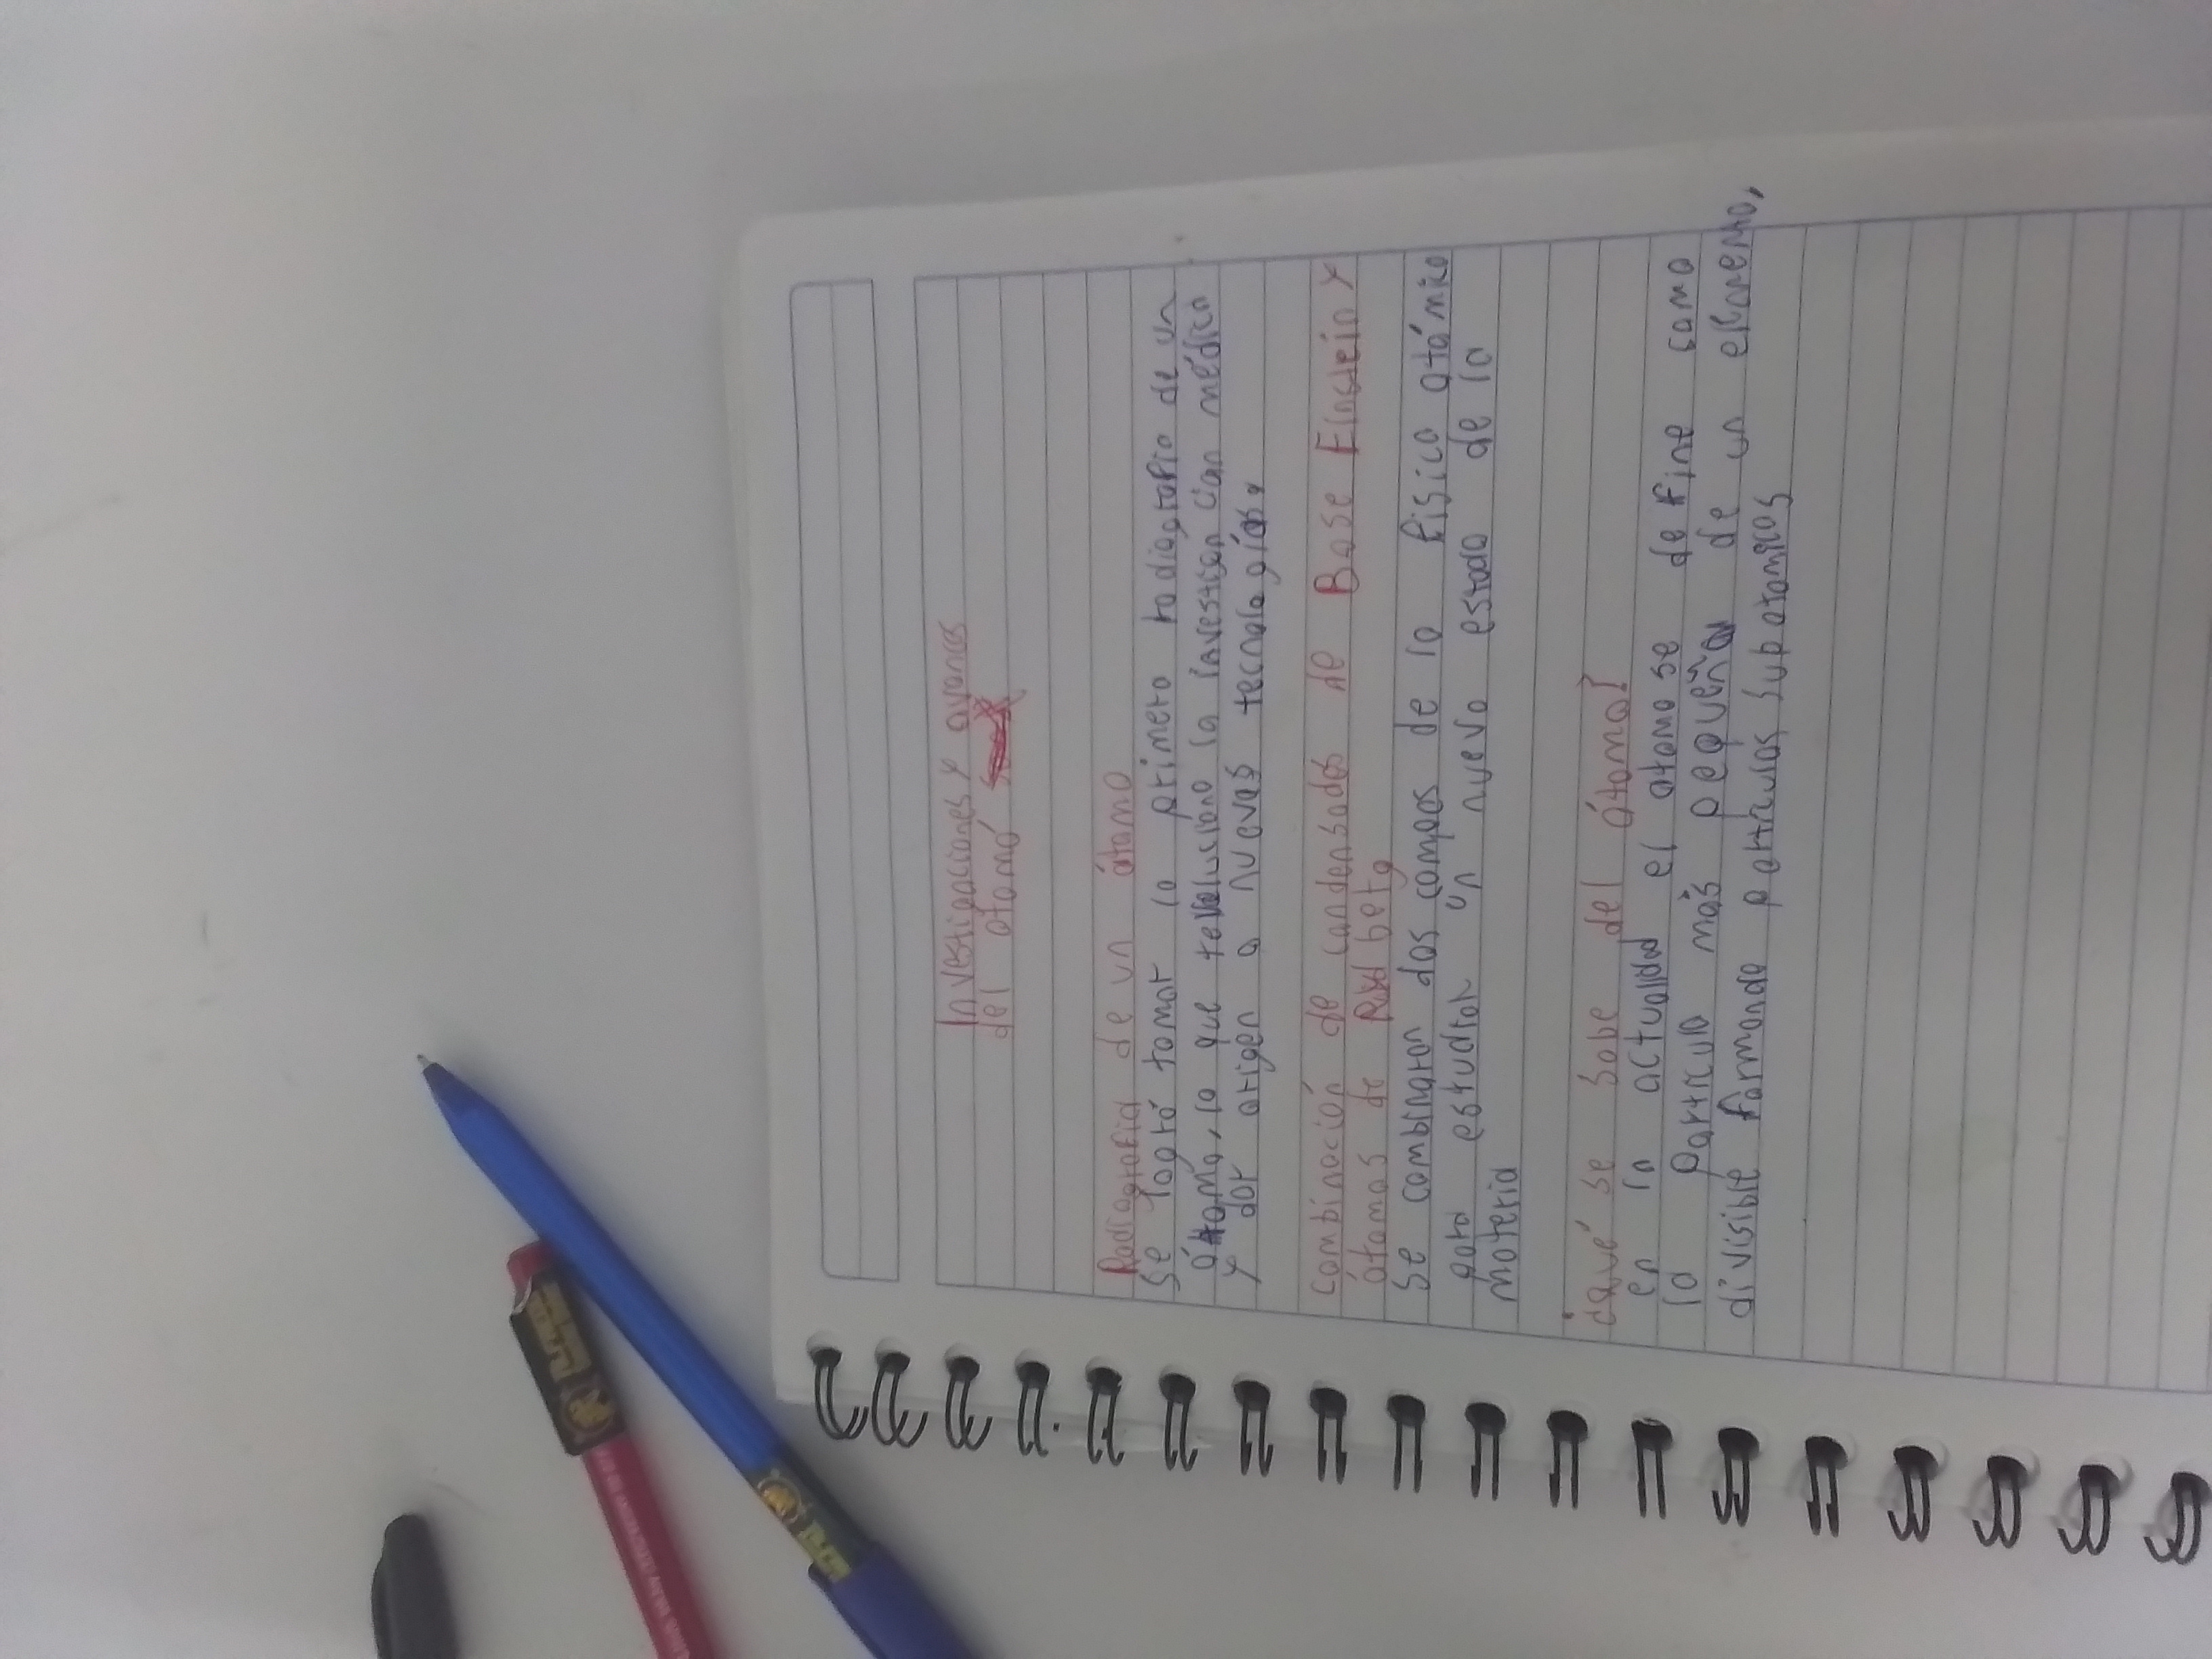 Investigaciones y avances
del átomo
Radiografia de un átomo
Se logró tomar la primera radiografia de un
átomo, lo que revoluciono la investigan cion médica
y dar origen a nuevas tecnologías.
combinación de condensados de Base Einstein y
átomos de Rydberg
Se combinaron dos campos de la física atómica
para estudiar un nuevo estado de la
materia
¿qué se sabe del átomo?
en la actualidad el atomo se define como
la partícula más pequeña de un elemento,
divisible formando partículas subatomicas